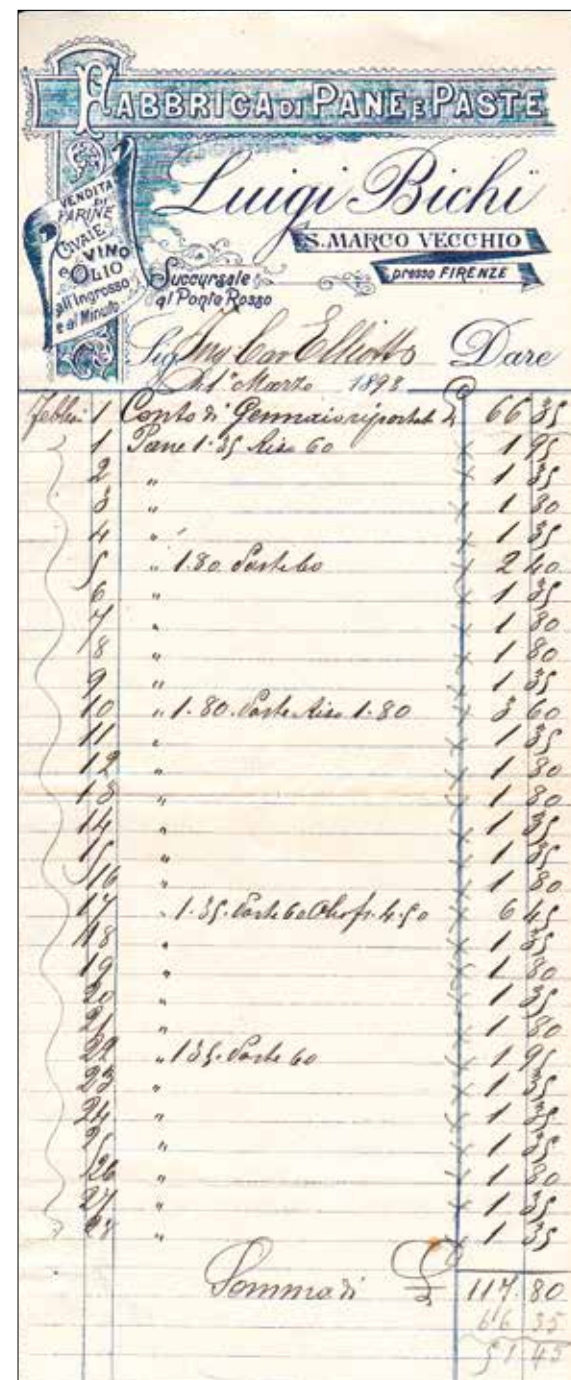 FABBRICA DI PANE E PASTE
Luigi Bichi
S. MARCO VECCHIO
presso FIRENZE
VENDITA
DI
FARINE
CIVAIE
VINO
e OLIO
all'Ingrosso
e al Minuto
Succursale
al Ponte Rosso
Sig. Ing Cav Elliott Dare
li 1° Marzo 1898
Febbraio 1 Conto di Gennaio riportato £ 66 35
1 Pane 1.35 Riso 60 1 95
2 " 1 35
3 " 1 80
4 " 1 35
5 " 1.80. Paste 60 2 40
6 " 1 35
7 " 1 80
8 " 1 80
9 " 1 35
10 " 1.80. Paste Riso 1.80 3 60
11 " 1 35
12 " 1 80
13 " 1 80
14 " 1 35
15 " 1 35
16 " 1 80
17 " 1.35. Paste 60 Olio 4.50 6 45
18 " 1 35
19 " 1 80
20 " 1 35
21 " 1 80
22 " 1 35. Paste 60 1 95
23 " 1 35
24 " 1 35
25 " 1 35
26 " 1 80
27 " 1 35
28 " 1 35
Somma di £ 117.80
66 35
51 45